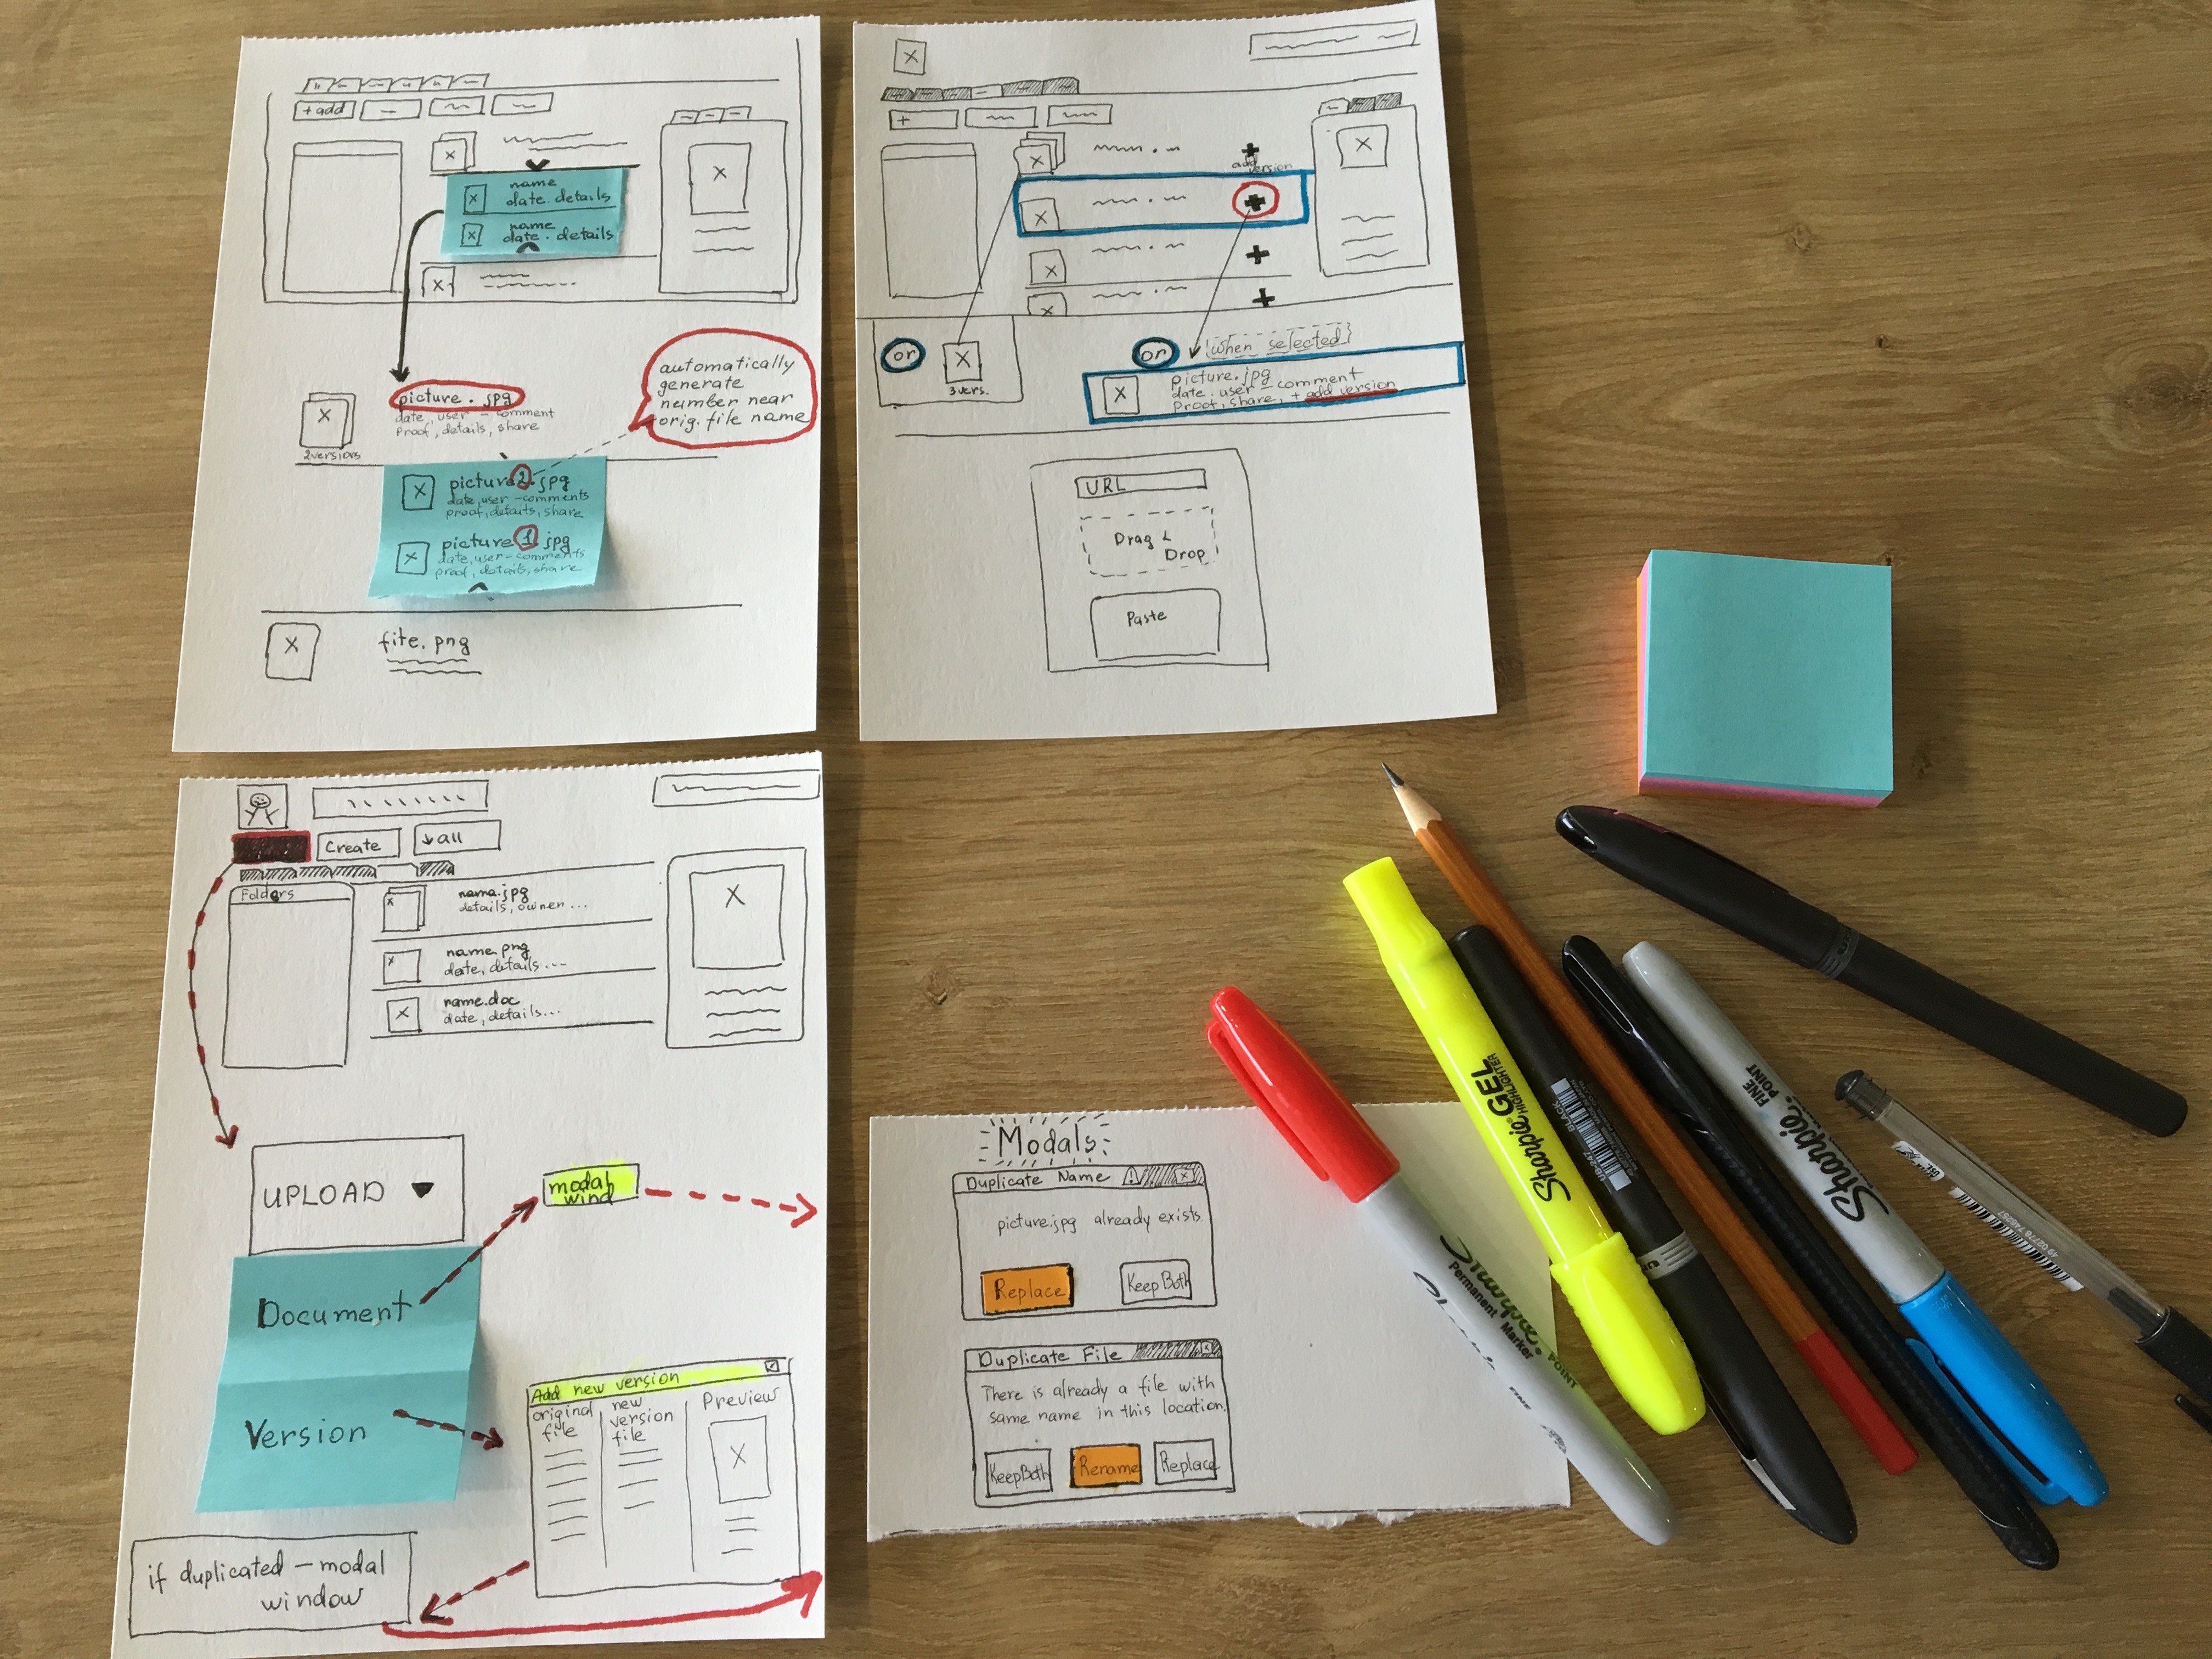 +add
name
date. details
name
date. details
picture.jpg
date, user - comment
Proof, details, share
2versions
automatically
generate
number near
orig. file name
picture2.jpg
date, user - comments
proof, details, share
picture1.jpg
date, user - comments
proof, details, share
file.png
+
add
version
or
3vers.
or
when selected
picture.jpg
date. user - comment
Proof, share, + add version
URL
Drag &
Drop
Paste
Create
all
Folders
name.jpg
details, owner...
name.png
date, details...
name.doc
date, details...
UPLOAD
modal
wind
Document
Version
Add new version
original
file
new
version
file
Preview
if duplicated - modal
window
Modals
Duplicate Name
picture.jpg already exists
Replace
Keep Both
Duplicate File
There is already a file with
same name in this location.
Keep Both
Rename
Replace
Sharpie
Permanent Marker
FINE POINT
Sharpie GEL
HIGHLIGHTER
UB-247
BLACK
Sharpie
FINE
POINT